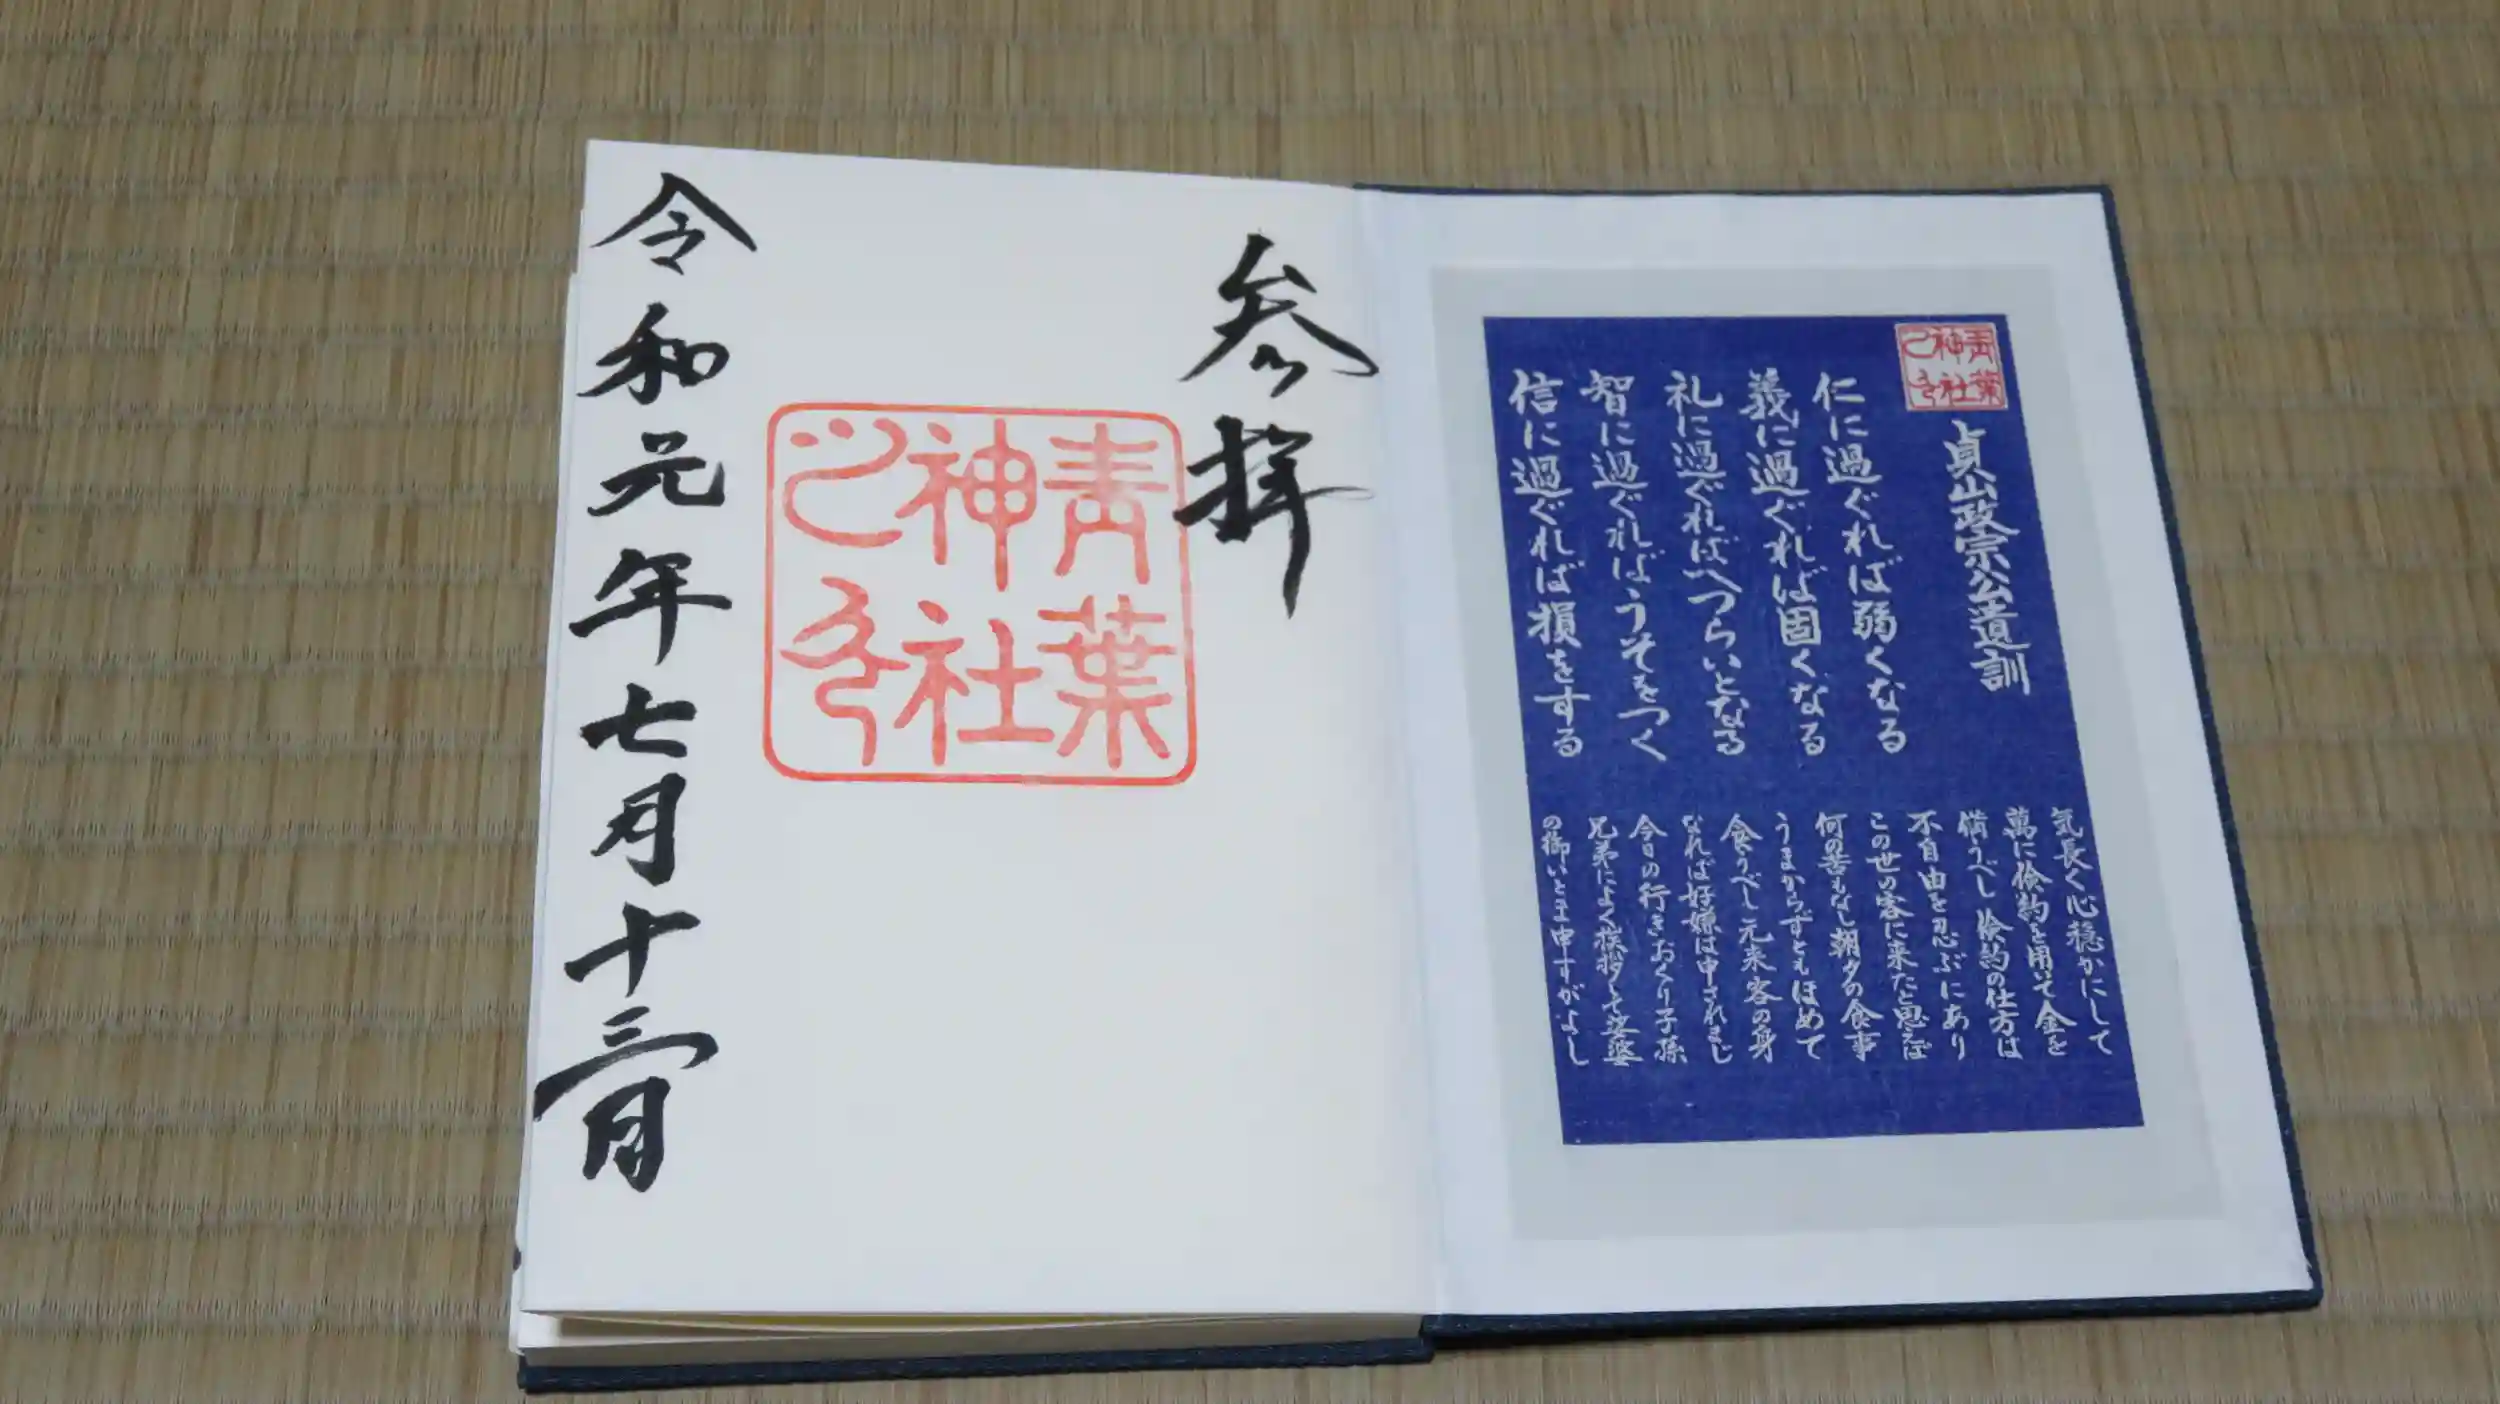 青葉
神社
之印
貞山政宗公遺訓
仁に過ぐれば弱くなる
義に過ぐれば固くなる
礼に過ぐればへつらいとなる
智に過ぐればうそをつく
信に過ぐれば損をする
気長く心穏かにして
萬に倹約を用いて金を
備うべし倹約の仕方は
不自由を忍ぶにあり
この世の客に来たと思えば
何の苦もなし朝夕の食事
うまからずともほめて
食うべし元来客の身
なれば好嫌は申されまじ
今日の行きおくり子孫
兄弟によく挨拶して娑婆
の御いとま申すがよし
参拝
青葉
神社
之印
令和元年七月十三日